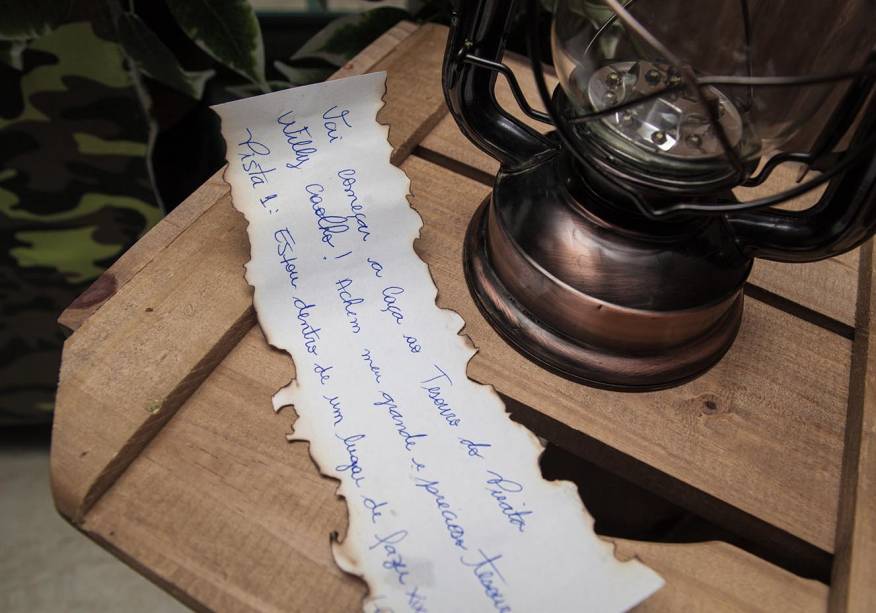 Vai começar a Caça ao Tesouro do Pirata
Willy Caolho! Achem meu grande e precioso tesouro
Pista 1: Estou dentro de um lugar de fazer